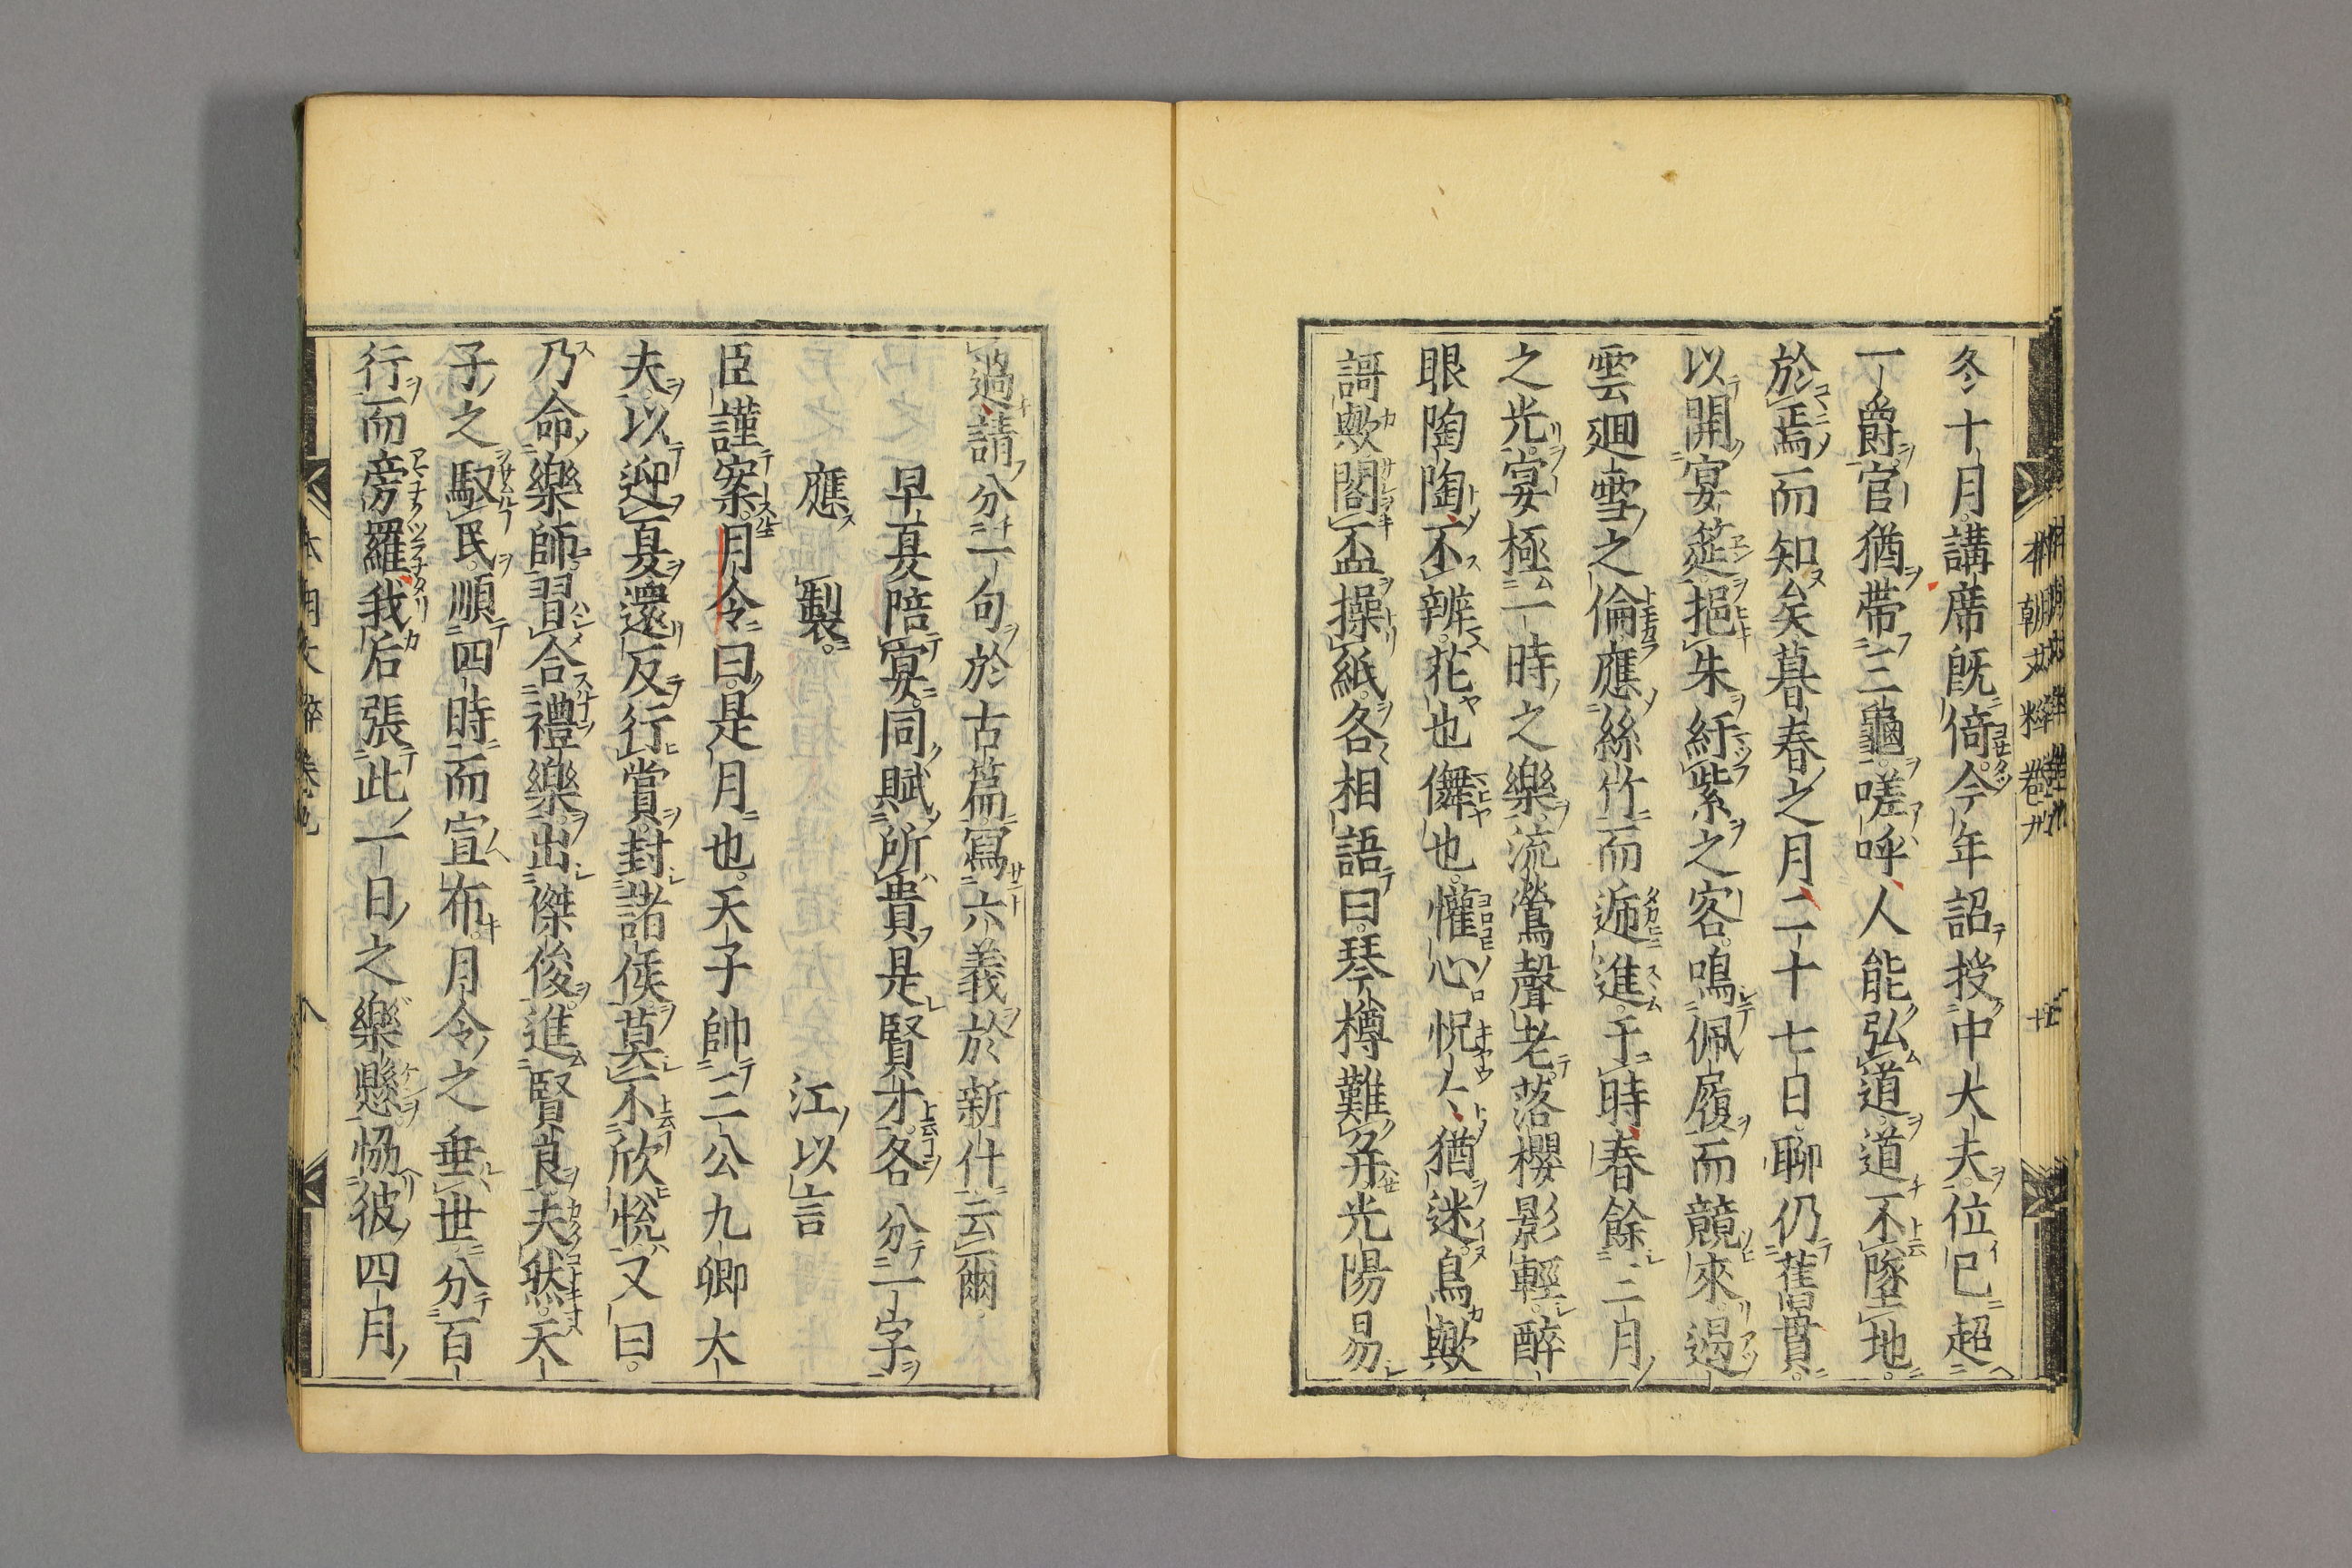 冬十月講席既倚今年詔授中大夫位已超
一爵官猶帶三龜嗟呼人能弘道道不墜地
於焉而知矣暮春之月二十七日聊仍舊貫
以開宴筵挹朱紆紫之客鳴佩履而競來遏
雲廻雪之倫應絲竹而遞進于時春餘三月
之光宴極一時之樂流鶯聲老落櫻影輕醉
眼陶陶不辨花也儛也懽心怳々猶迷鳥歟
謌歟閣盃操紙各相語曰琴樽難并光陽易
過請分一句於古篇寫六義於新什云爾
早夏陪宴同賦所貴是賢才各分一字
應製 江以言
臣謹案月令曰是月也天子帥三公九卿大
夫以迎夏還反行賞封諸侯莫不欣悅又曰
乃命樂師習合禮樂出傑俊進賢良夫然天
子之馭民順四時而宣布月令之垂世分百
行而旁羅我后張此一日之樂懸恊彼四月